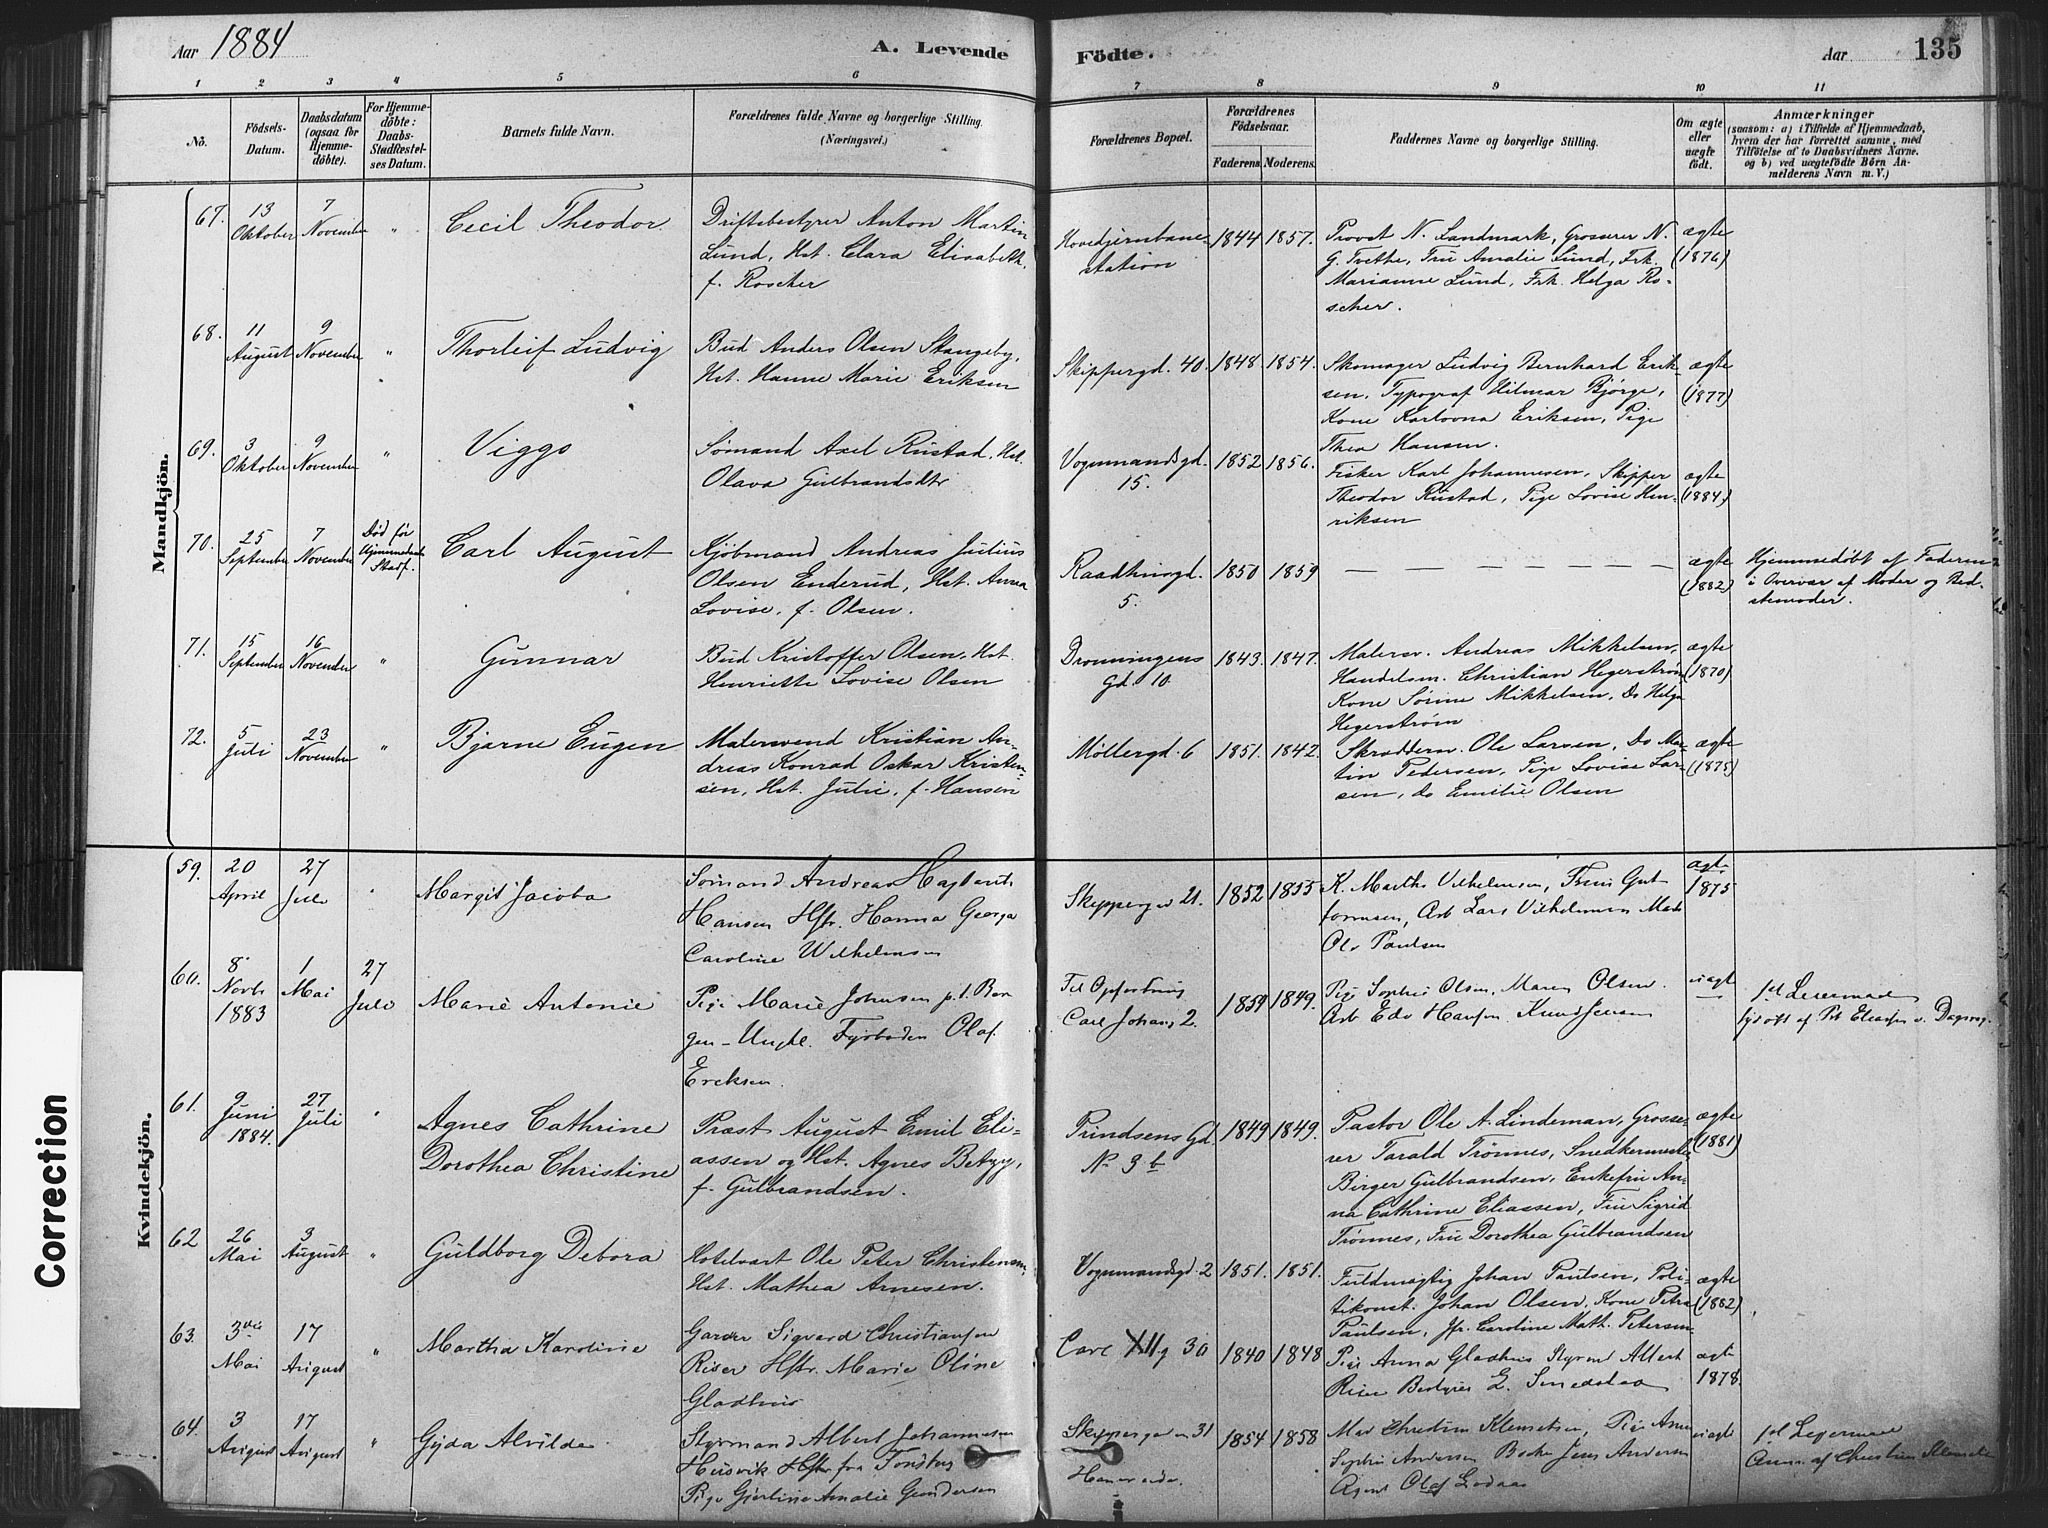 Aar 1884
A. Levende
Födte.
Aar
135
1 2 3 4 5 6 7 8 9 10 11
No.
Födsels-
Datum.
Daabsdatum
(ogsaa för
Hjemme-
döbte).
For Hjemme-
döbte:
Daabs-
Stadfæstel-
ses Datum.
Barnets fulde Navn.
Forældrenes fulde Navne og borgerlige Stilling.
(Næringsvei.)
Forældrenes Bopæl.
Forældrenes
Födselsaar.
Faderens.
Moderens.
Faddernes Navne og borgerlige Stilling.
Om ægte
eller
uægte
födt.
Anmærkninger
(saasom: a) i Tilfælde af Hjemmedaab,
hvem der har forrettet samme, med
Tilföielse af to Daabsvidners Navne,
og b) ved uægtefödte Börn An-
melderens Navn m. V.)
Mandkjön.
67.
13
Oktober
7
November
"
Cecil Theodor
Driftsbestyrer Anton Martin
Lund, Hst. Clara Elisabeth
f. Roscher
Hovedjernbane-
station
1844
1857.
Provst N. Landmark, Grosserer N.
G. Tvethe, Fru Amalie Lund, Frk.
Marianne Lund, Frk. Helga Ro-
scher.
ægte
(1876)
68.
11
August
9
November
"
Thorleif Ludvig
Bud Anders Olsen Stangeby,
Hst. Hanne Marie Eriksen
Skippergd. 40.
1848.
1854.
Skomager Ludvig Bernhard Erik-
sen, Typograf Hilmar Bjørge,
Kone Karlovna Eriksen, Pige
Thea Hansen.
ægte
(1877)
69.
3
Oktober
9
November
"
Viggo
Sømand Axel Rustad, Hst.
Olava Gulbrandsdtr
Vognmandsgd.
15.
1852
1856.
Fisker Karl Johannesen, Skipper
Theodor Rustad, Pige Lovise Hen-
riksen
ægte
(1884)
70.
25
September
7
November
Død før
Stadf.
Carl August
Kjøbmand Andreas Julius
Olsen Enderud, Hst. Anna
Lovise, f. Olsen.
Raadhusgd.
5.
1850
1859
— — — — — — —
ægte
(1882)
Hjemmedøbt af Faderen
i Overvær af Moder og Bed-
stemoder.
71.
15
September
16
November
"
Gunnar
Bud Kristoffer Olsen, Hst.
Henriette Lovise Olsen
Dronningens
gd. 10.
1843.
1847.
Malersv. Andreas Mikkelsen,
Handelsm. Christian Hegerstrøm
Kone Sørine Mikkelsen, Do Helga
Hegerstrøm
ægte
(1870)
72.
5
Juli
23
November
"
Bjarne Eugen
Malersvend Kristian An-
dreas Konrad Oskar Kristen-
sen, Hst. Julie, f. Hansen
Møllergd. 6
1851.
1842.
Skræddersv. Ole Larsen, Do Mar-
tin Pedersen, Pige Lovise Lar-
sen, Do Emilie Olsen
ægte
(1875)
Kvindekjön.
59.
20
April
27
Juli
"
Margit Jacoba
Sømand Andreas
Hansen Hstr. Hanna Georga
Caroline Wilhelmsen
Skipperg 21.
1852
1855
K. Marthe Vilhelmsen, Fru Gut
formsen, Arb Lars Vilhelmsen
Ole Paulsen
ægte
1875
60.
8
Novbr
1883
1
Mai
27
Juli
Marie Antonie
Pige Marie Johnsen p.t. Ber
gen – Ungk. Fyrbøder Olaf
Eriksen
Til Opfostring
Carl Johans 2.
1859
1849.
Pige Sophie Olsen, Maren Olsen.
Arb Edv Hansen Knud Jensen
uægte
1ste Leiermaal
61.
9
Juni
1884.
27
Juli
"
Agnes Cathrine
Dorothea Christine
Præst August Emil Eli-
assen og Hst. Agnes Betzy,
f. Gulbrandsen.
Prindsens Gd
No 3b
1849
1849.
Pastor Ole A. Lindeman, Grosse-
rer Tarald Trønnes, Snedkermester
Birger Gulbrandsen, Enkefru An-
na Cathrine Eliassen, Fru Sigrid
Trønnes, Fru Dorothea Gulbrandsen
ægte
(1881)
62
26
Mai
3
August
"
Guldborg Debora
Hotelvært Ole Peter Christensen,
Hst. Mathea Arnesen.
Vognmandsgd. 2
1851.
1851.
Fuldmægtig Johan Paulsen, Poli-
tikonst. Johan Olsen, Kone Petra
Paulsen, Jfr. Caroline Math. Petersen
ægte
(1882)
63.
3die
Mai
17
August
"
Martha Karoline
Garder Sigvard Christiansen
Riser Hstr. Marie Oline
Gladhus
Carl XII g 30
1840
1848
Pige Anna Gladhus Styrmd Albert
Riser Bestyrer L. Smedstad
ægte
1878.
64.
3
August
17
August
"
Gyda Alvilde
Styrmand Albert Johannesen
Husvik Hstr fra Tønsberg
Pige Gjerline Amalie Gundersen
Skipperga 31
1854
1858
Christian Klemetsen, Pige Anne
Sophie Andersen Jens Andersen
Agent Olof
uægte
1st Leiermaal
Anm. af Christian Klemetsen
Correction